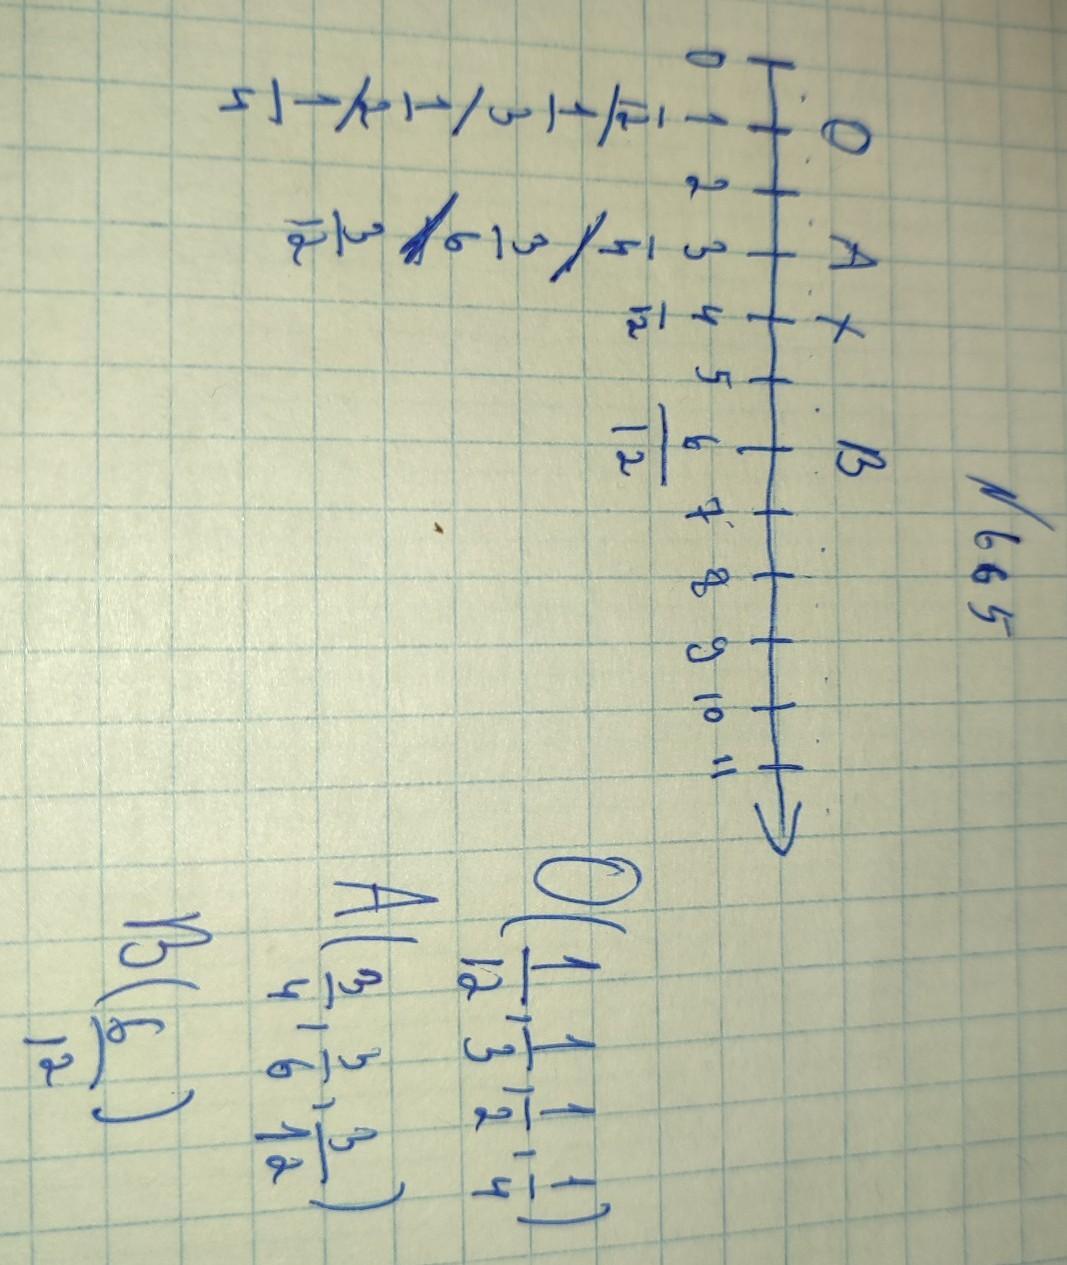 N 665
O A X B
0 1 2 3 4 5 6 7 8 9 10 11
1/12 / 1/3 / 1/2 / 1/4
3/4 / 3/6 3/12
4/12
6/12
O(1/12, 1/3, 1/2, 1/4)
A(3/4, 3/6, 3/12)
B(6/12)